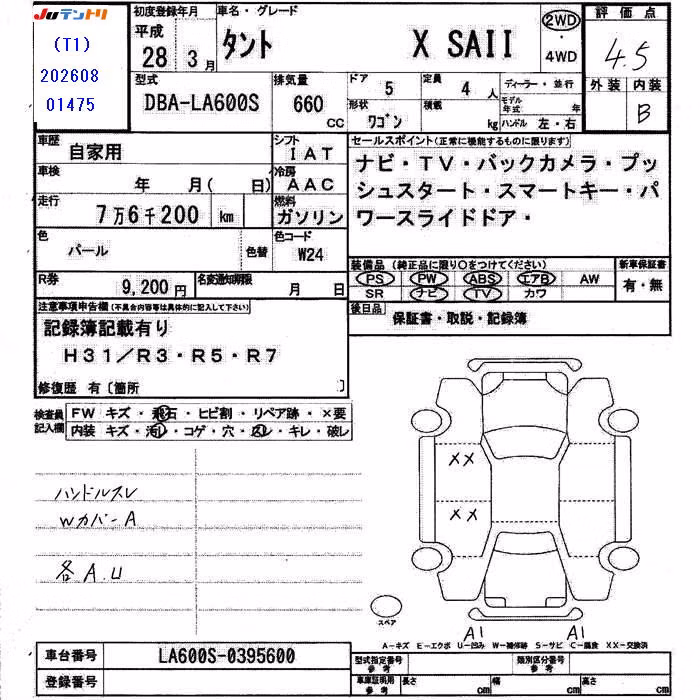 Juテントリ
(T1)
202608
01475
初度登録年月
平成
28年3月
車名・グレード
タント X SAII
2WD
・
4WD
評価点
4.5
型式
DBA-LA600S
排気量
660
CC
ドア
5
定員
4人
形状
ワゴン
積載
kg
ディーラー・並行
モデル年式 年
ハンドル 左・右
外装 内装
B
車歴
自家用
シフト
IAT
車検
年 月( 日)
冷房
AAC
走行
7万6千200 km
燃料
ガソリン
色
パール
色替
色コード
W24
R券
9,200円
名変通知期限
月 日
セールスポイント(正常に機能するものに限ります)
ナビ・TV・バックカメラ・プッ
シュスタート・スマートキー・パ
ワースライドドア・
装備品 (純正品に限り○をつけてください)
PS PW ABS エアB AW
SR ナビ TV カワ
新車保証書
有・無
後日品
保証書・取説・記録簿
注意事項申告欄(不具合内容等は具体的に記入して下さい)
記録簿記載有り
H31/R3・R5・R7
修復歴 有〔箇所 〕
検査員
記入欄
FW キズ・飛石・ヒビ割・リペア跡・×要
内装 キズ・汚レ・コゲ・穴・スレ・キレ・破レ
ハンドルスレ
Wカバー A
各 A.U
XX
XX
スペア
A1
A1
A-キズ E-エクボ U-凹み W-補修跡 S-サビ C-腐食 XX-交換済
車台番号
LA600S-0395600
登録番号
型式指定番号
参考
類別区分番号
参考
車庫証明用
参考
長さ cm 幅 cm 高さ cm